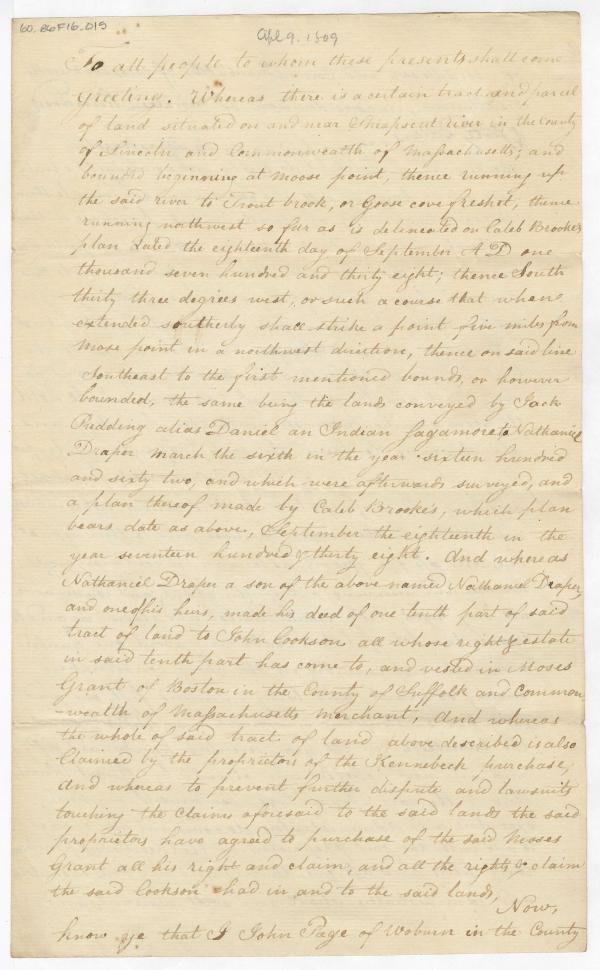 60.86F16.015
Apl 9. 1809
To all people to whom these presents shall come
Greeting. Whereas there is a certain tract and parcel
of land situated on and near Sheapscut river in the County
of Lincoln and Commonwealth of Massachusetts; and
bounded beginning at Moose point, thence running up
the said river to Trout brook, or Goose cove freshet, thence
running northwest so far as is delineated on Caleb Brookes
plan dated the eighteenth day of September A D one
thousand seven hundred and thirty eight; thence South
thirty three degrees west, or such a course that when
extended southerly shall strike a point five miles from
Mose point in a northwest direction, thence on said line
Southeast to the first mentioned bounds, or however
bounded, the same being the lands conveyed by Jack
Pudding alias Daniel an Indian Sagamore to Nathaniel
Draper march the sixth in the year sixteen hundred
and sixty two, and which were afterwards surveyed, and
a plan thereof made by Caleb Brookes, which plan
bears date as above, September the eighteenth in the
year seventeen hundred & thirty eight. And whereas
Nathaniel Draper a son of the above named Nathaniel Draper,
and one of his heirs, made his deed of one tenth part of said
tract of land to John Cookson all whose right & estate
in said tenth part has come to, and vested in Moses
Grant of Boston in the County of Suffolk and Common
-wealth of Massachusetts Merchant, And whereas
the whole of said tract of land above described is also
Claimed by the proprietors of the Kennebeck purchase,
And whereas to prevent further dispute and lawsuits
touching the claims aforesaid to the said lands the said
proprietors have agreed to purchase of the said Moses
Grant all his right and claim, and all the rights & claim
the said Cookson had in and to the said lands,
Now,
know ye that I John Page of Woburn in the County